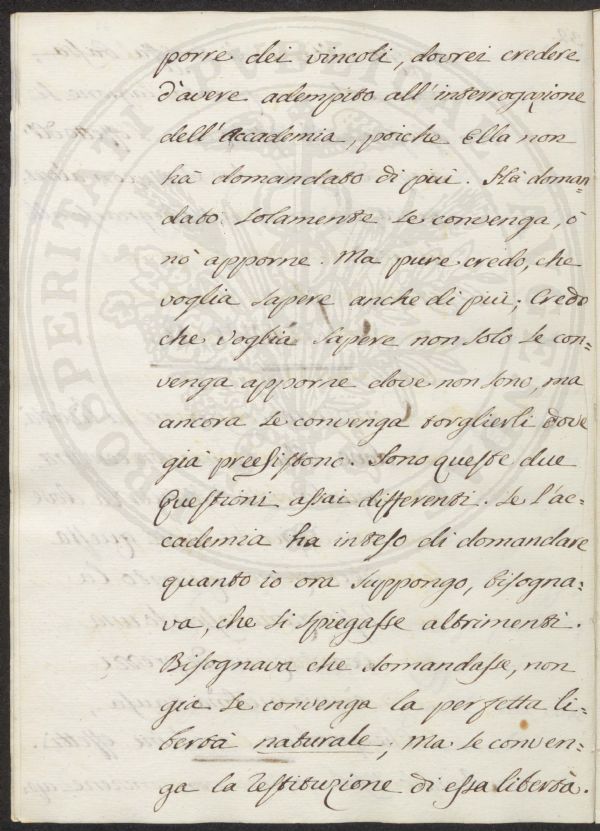 porre dei vincoli, dovrei credere
d'avere adempito all'interrogazione
dell'Accademia, poiche Ella non
hà domandato di più. Hà doman=
dato solamente se convenga, ò
nò apporne. Ma pure credo, che
voglia sapere anche di più; Credo
che voglia sapere non solo se con=
venga apporne dove non sono, ma
ancora se convenga torglierli dove
già preesistono. Sono queste due
Questioni assai differenti. Se l'ac=
cademia ha inteso di domandare
quanto io ora suppongo, bisogna=
va, che si spiegasse altrimenti.
Bisognava che domandasse, non
già se convenga la perfetta li=
bertà naturale; Ma se conven=
ga la restituzione di essa libertà.
PROSPERITATI PUBLICAE AUGENDAE